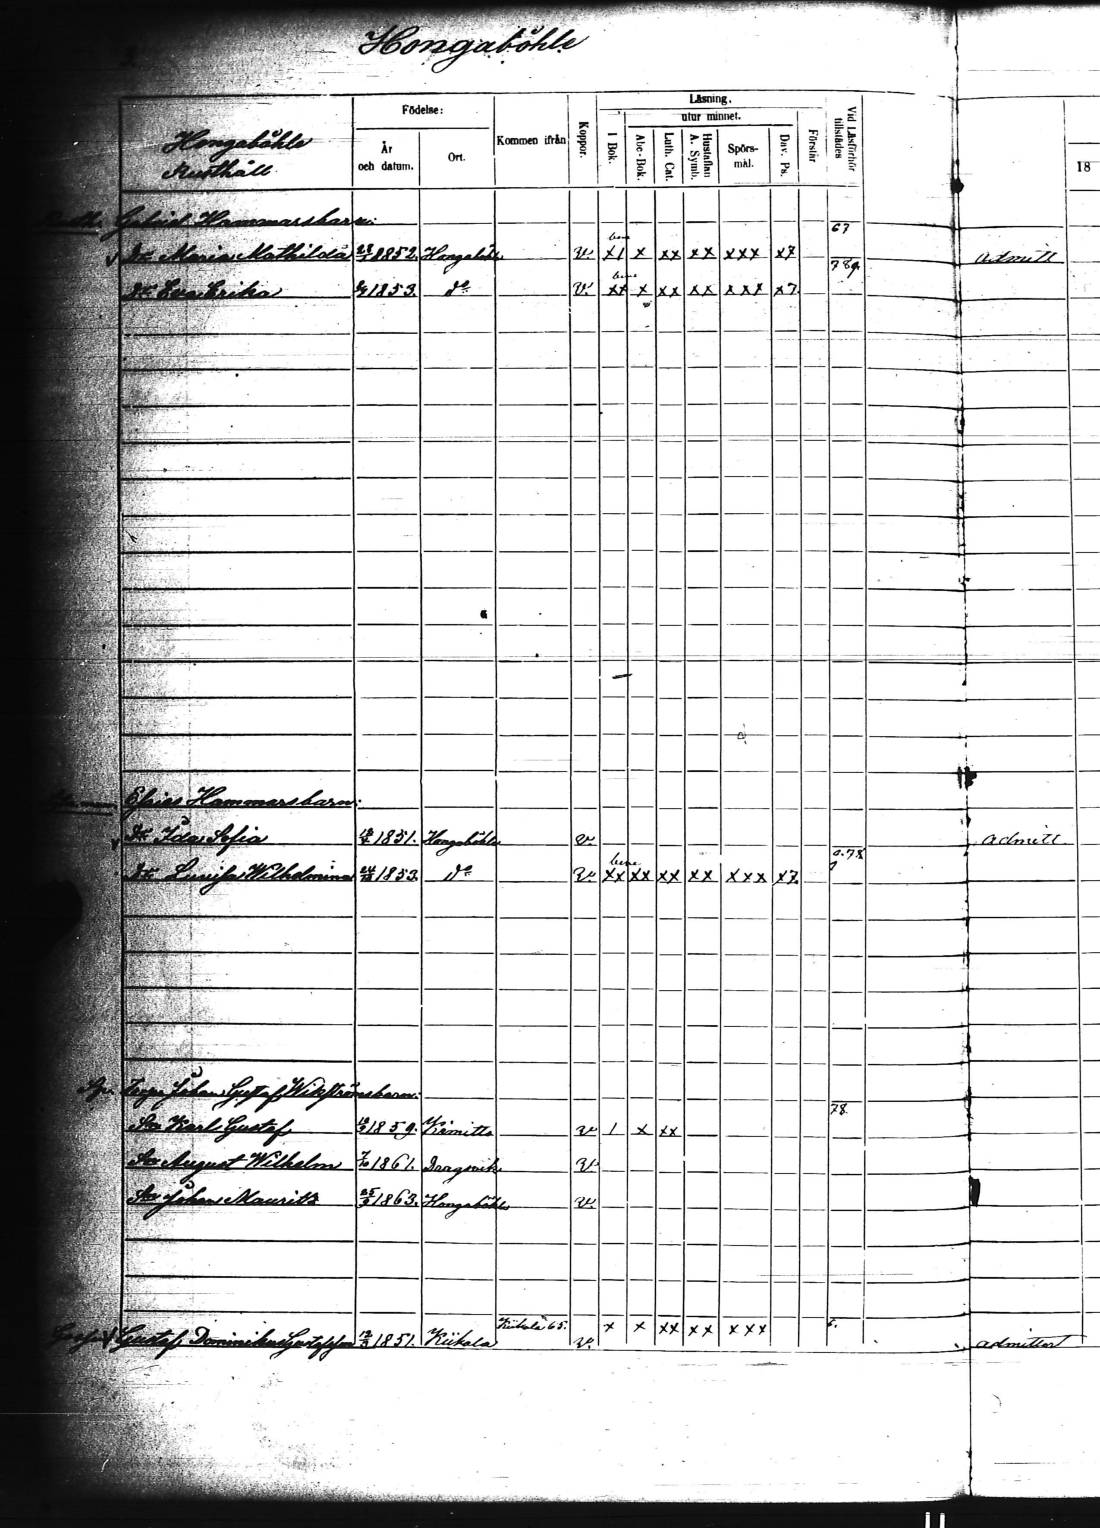 Hongaböhle
Hongaböhle
Rusthåll
Födelse:
År
och datum.
Ort.
Kommen ifrån
Koppor.
Läsning.
utur minnet.
I Bok.
Abc-Bok.
Luth. Cat.
Hustaflan
A. Symb.
Spörs-
mål.
Dav. Ps.
Förstår
Vid Läsförhör
tillstädes
18
Gabriel Hammarsbarn: 67
v Dr Maria Mathilda 1852. Hongaböhle v. bene x1 x xx xx xxx x7 admitt
789.
Dr Eva Erika 1853. do v. bene xx x xx xx xxx x7.
Elias Hammarsbarn:
v Dr Ida Sofia 1851. Hongaböhle v. admitt
Dr Lovisa Wilhelmina 1853. do v. bene xx xx xx xx xxx x7.
Johan Gustaf Wikströmsbarn: 78.
Son Karl Gustaf 1859. Kimitto v 1 x xx
Son August Wilhelm 1861. Dragsvik v.
Son Johan Mauritz 1863. Hongaböhle v.
Kiikala 65. x x xx xx xxx
Gustaf Dominikus Gustafsson 1851. Kiikala v. admitter